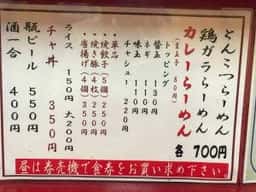 とんこつらーめん
鶏ガラらーめん
カレーらーめん
各 700円
(玉子 50円)
トッピング
替玉 130円
ネギ 110円
味玉 110円
チャシュー 220円
単品
焼餃子(5個) 250円
焼き豚(4枚) 250円
ライス 150円 大200円
チャ丼 350円
瓶ビール 550円
酒一合 400円
昼は券売機で食券をお買い求め下さい